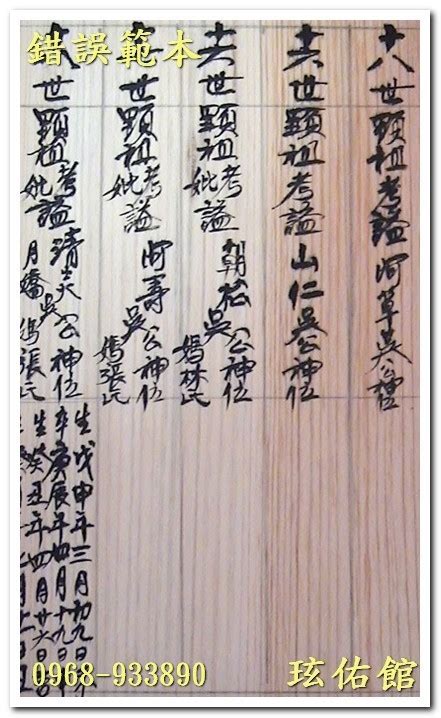 錯誤範本
十八世顯祖考謚阿草吳公神位
十六世顯祖考謚山仁吳公神位
十六世顯祖考妣謚朝松吳公神位媽林氏
世顯祖考妣謚阿壽吳公神位媽張氏
八世顯祖考妣謚清公神位月嬌媽張氏
生戊申年三月初九日
卒庚辰年四月十九日
生癸丑年四月廿六日
0968-933890
玹佑館